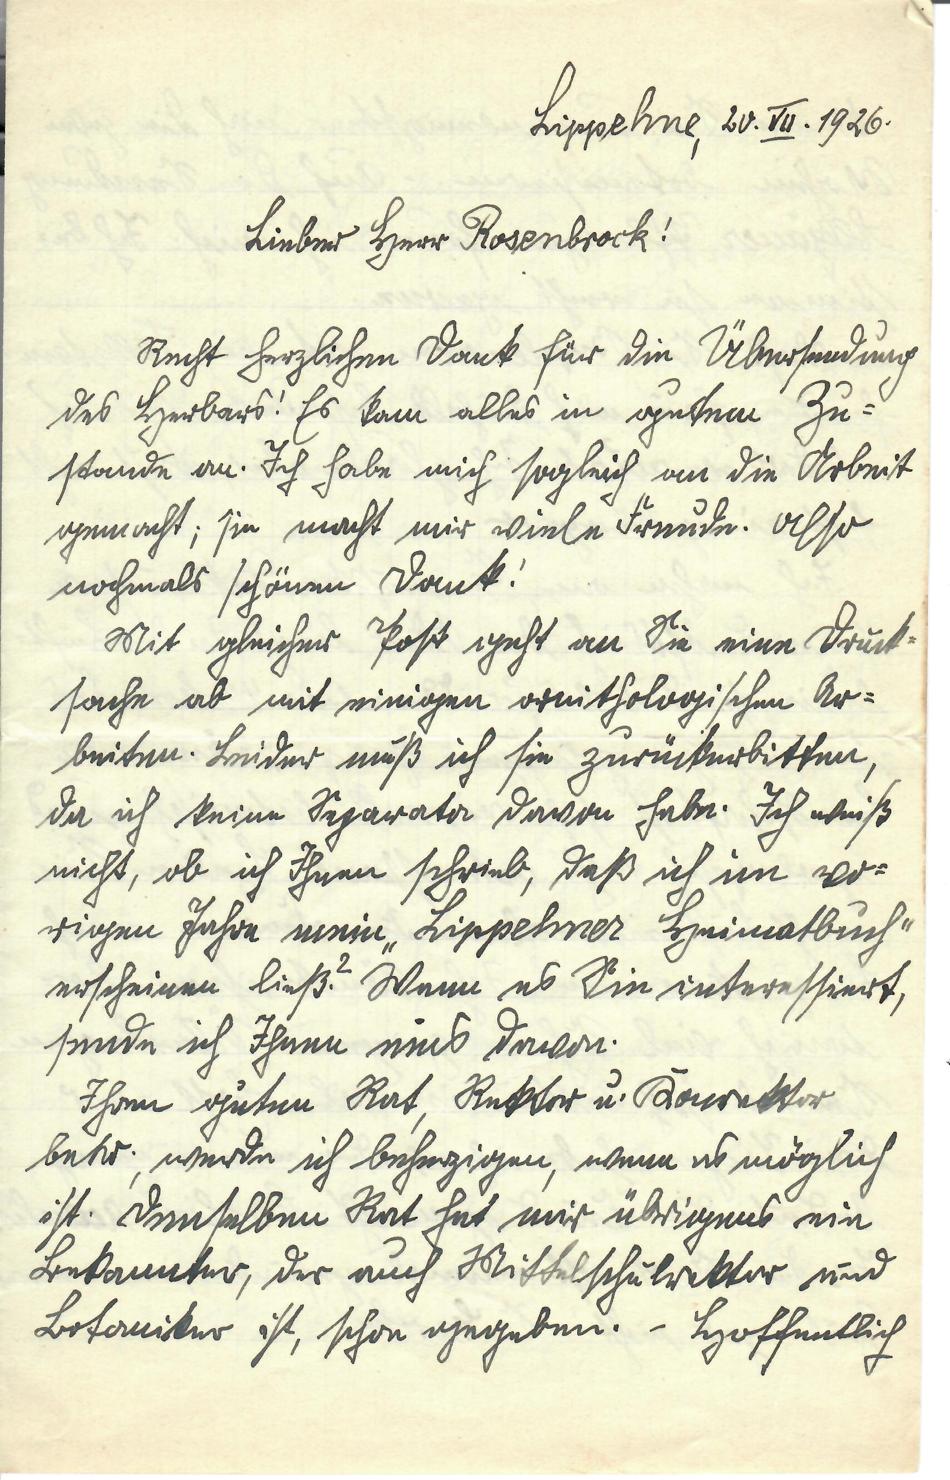 Lippehne, 20. VII. 1926.
Lieber Herr Rosenbrock!
Recht herzlichen Dank für die Übersendung
des Herbars! Es kam alles in gutem Zu=
stande an. Ich habe mich sogleich an die Arbeit
gemacht; sie macht mir viele Freude. Also
nochmals schönen Dank!
Mit gleicher Post geht an Sie eine Druck=
sache ab mit einigen ornithologischen Ar=
beiten. Leider muß ich sie zurückerbitten,
da ich keine Separata davon habe. Ich weiß
nicht, ob ich Ihnen schrieb, daß ich im vo=
rigen Jahre mein „Lippehner Heimatbuch“
erscheinen ließ? Wenn es Sie interessiert,
sende ich Ihnen eins davon.
Ihren guten Rat, Rektor u. Konrektor
betr., werde ich beherzigen, wenn es möglich
ist. Denselben Rat hat mir übrigens ein
Bekannter, der auch Mittelschulrektor und
Botaniker ist, schon gegeben. – Hoffentlich